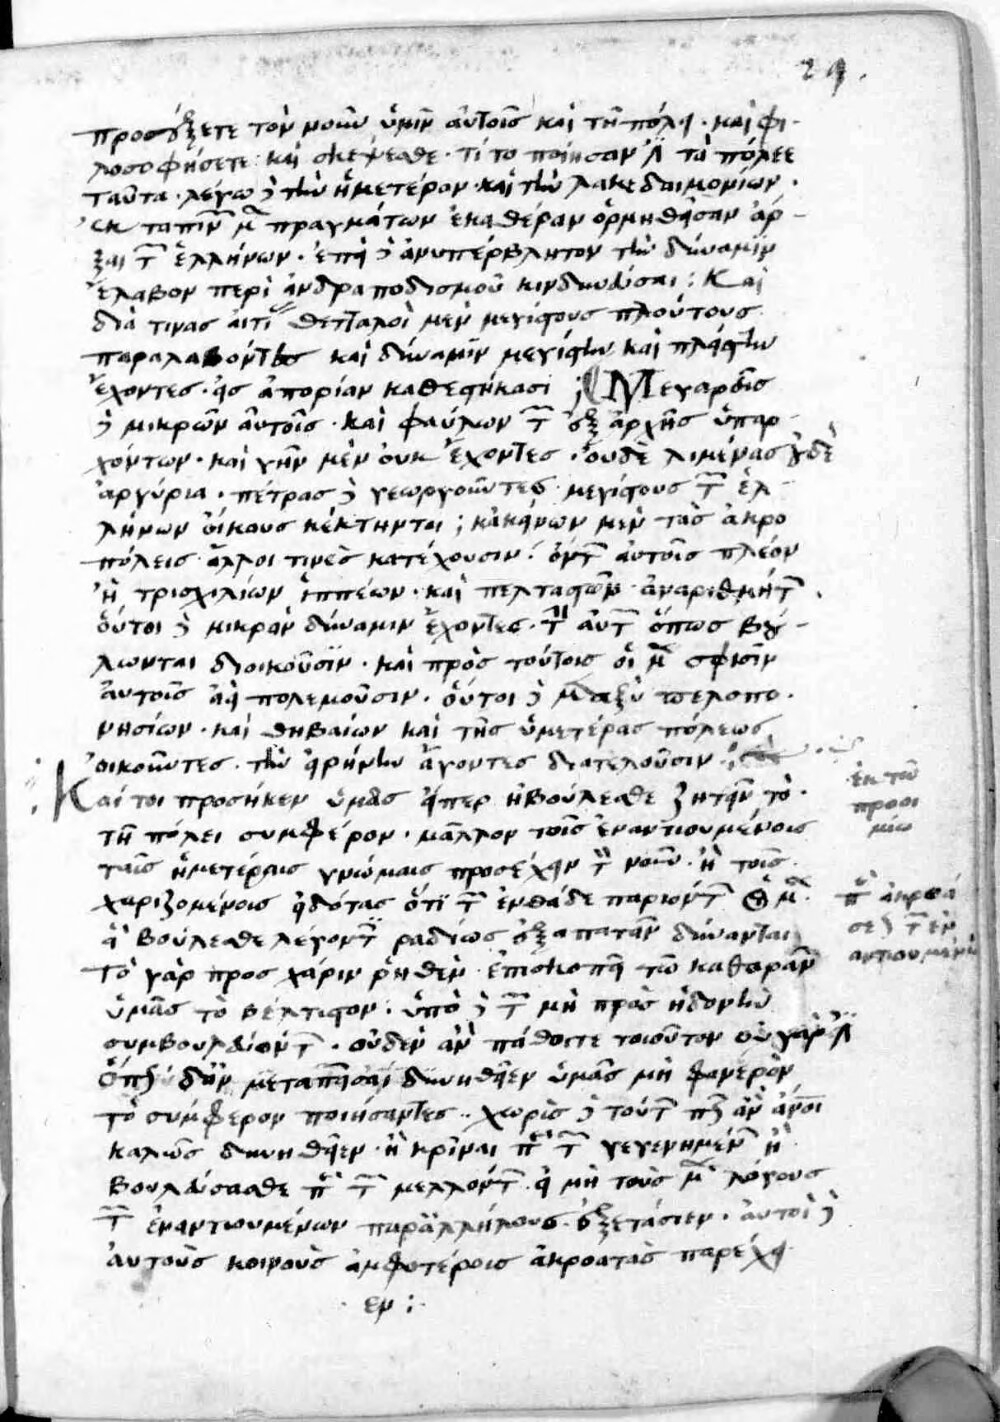 29.
προσέξετε τὸν νοῦν ὑμῖν αὐτοῖς καὶ τῆ πόλει · καὶ φι-
λοσοφήσετε καὶ σκέψεσθε · τί τὸ ποιῆσαν τὰ πόλεε
ταῦτα · λέγω δὲ τὴν ἡμετέραν · καὶ τὴν λακεδαιμονίων ·
ἐκ ταπινῶν μὲν πραγμάτων ἑκατέραν ὁρμηθῆσαν ἄρ-
ξαι τῶν ἑλλήνων · ἐπεὶ δὲ ἀνυπέρβλητον τὴν δύναμιν
ἔλαβον περὶ ἀνδραποδισμοῦ κινδυνεῦσαι ; Καὶ
διὰ τίνας αἰτίας θετταλοὶ μὲν μεγίστους πλούτους
παραλαβόντες καὶ δύναμιν μεγίστην καὶ πλείστην
ἔχοντες · εἰς ἀπορίαν καθεστήκασι ; Μεγαρεῖς
δὲ μικρῶν αὐτοῖς · καὶ φαύλων τῶν ἐξ ἀρχῆς ὑπαρ-
χόντων · καὶ γῆν μὲν οὐκ ἔχοντες · οὐδὲ λιμένας οὐδὲ
ἀργύρια · πέτρας δὲ γεωργοῦντες · μεγίστους τῶν ἑλ-
λήνων οἴκους κέκτηνται ; κἀκείνων μὲν τὰς ἀκρο
πόλεις ἄλλοι τινὲς κατέχουσιν · ὄντων αὐτοῖς πλέον
ἢ τρισχιλίων ἱππέων · καὶ πελταστῶν ἀναριθμήτων ·
οὗτοι δὲ μικρὰν δύναμιν ἔχοντες · τὴν αὐτῶν ὅπως βού-
λωνται διοικοῦσιν · καὶ πρὸς τούτοις οἱ μὲν σφίσιν
αὐτοῖς ἀεὶ πολεμοῦσιν · οὗτοι δὲ μεταξὺ πελοπο-
νησίων · καὶ θηβαίων καὶ τῆς ὑμετέρας πόλεως
οἰκοῦντες · τὴν εἰρήνην ἄγοντες διατελοῦσιν ·
Καίτοι προσῆκεν ὑμᾶς εἴπερ ἠβούλεσθε ζητεῖν τὸ
τῆ πόλει συμφέρον · μᾶλλον τοῖς ἐναντιουμένοις
ταῖς ἡμετέραις γνώμαις προσέχειν τὸν νοῦν · ἢ τοῖς
χαριζομένοις εἰδότας ὅτι τῶν ἐνθάδε παριόντων οἱ μὲν
ἃ βούλεσθε λέγοντες ῥαδίως ἐξαπατᾶν δύνανται
τὸ γὰρ πρὸς χάριν ῥηθὲν ἐπισκοπεῖ τῶ καθορᾶν
ὑμᾶς τὸ βέλτιστον · ὑπὸ δὲ τῶν μὴ πρὸς ἡδονὴν
συμβουλευόντων · οὐδὲν ἂν πάθοιτε τοιοῦτον οὐ γὰρ ἔστιν
ὅπως ἂν μεταπεῖσαι δυνηθεῖεν ὑμᾶς μὴ φανερὸν
τὸ συμφέρον ποιήσαντες · χωρὶς δὲ τούτων πῶς ἂν ἄνθρωποι
καλῶς δυνηθεῖεν ἢ κρῖναι περὶ τῶν γεγενημένων ἢ
βουλεύσασθε περὶ τῶν μελλόντων εἰ μὴ τοὺς μὲν λόγους
τῶν ἐναντιουμένων παρ' ἀλλήλους ἐξετάσιεν · αὐτοὶ δὲ
αὑτοὺς κοινοὺς ἀμφοτέροις ἀκροατὰς παρέχοι
εν :
ἐκ τῶν
προοι
μίω
περὶ ἀκροά
σεως τῶν ἐν
αντιουμένων